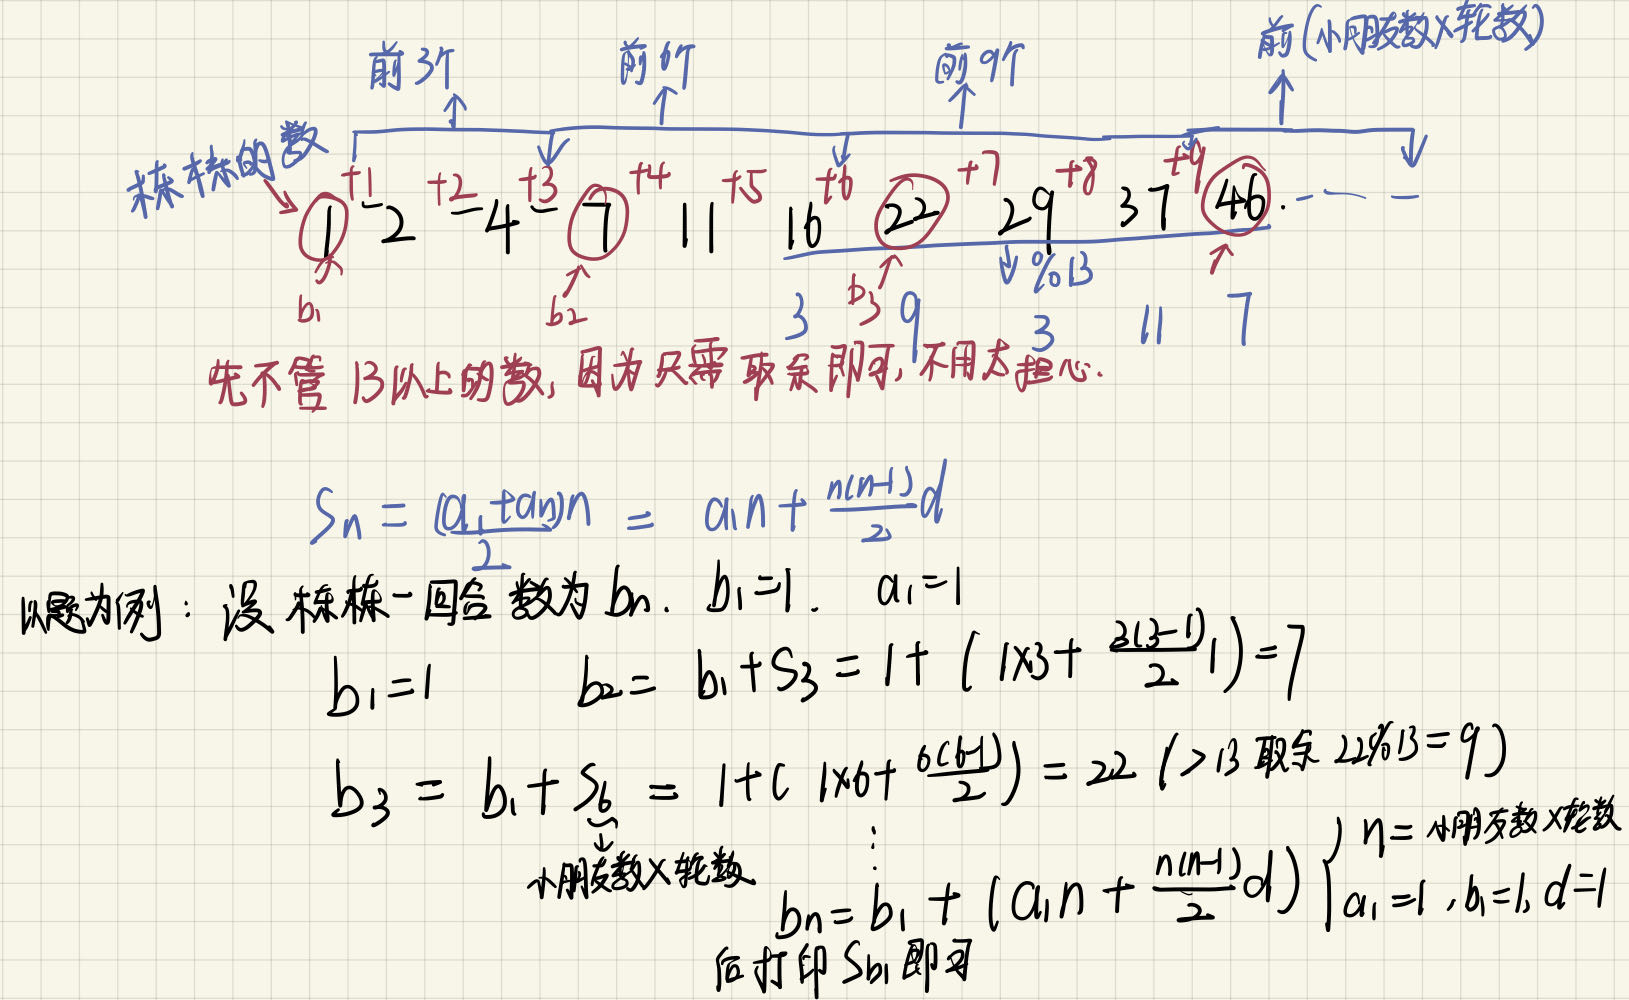 前3个 前6个 前9个 前(小朋友数×轮数)
栋栋的数
+1 +2 +3 +4 +5 +6 +7 +8 +9
1 2 4 7 11 16 22 29 37 46 ......
b₁ b₂ b₃ %13
3 9 3 11 7
先不管13以上的数,因为只需取余即可,不用太担心.
Sₙ = (a₁+aₙ)n/2 = a₁n + n(n-1)/2 d
以题为例：设栋栋一回合数为bₙ. b₁=1. a₁=1
b₁=1 b₂= b₁+S₃ = 1+(1×3+ 3(3-1)/2 1)=7
b₃ = b₁+S₆ = 1+( 1×6+ 6(6-1)/2 ) = 22 (>13 取余 22%13=9)
小朋友数×轮数
⋮
bₙ= b₁ + (a₁n + n(n-1)/2 d) { n= 小朋友数×轮数
a₁=1, b₁=1, d=1
后打印Sb₁即可